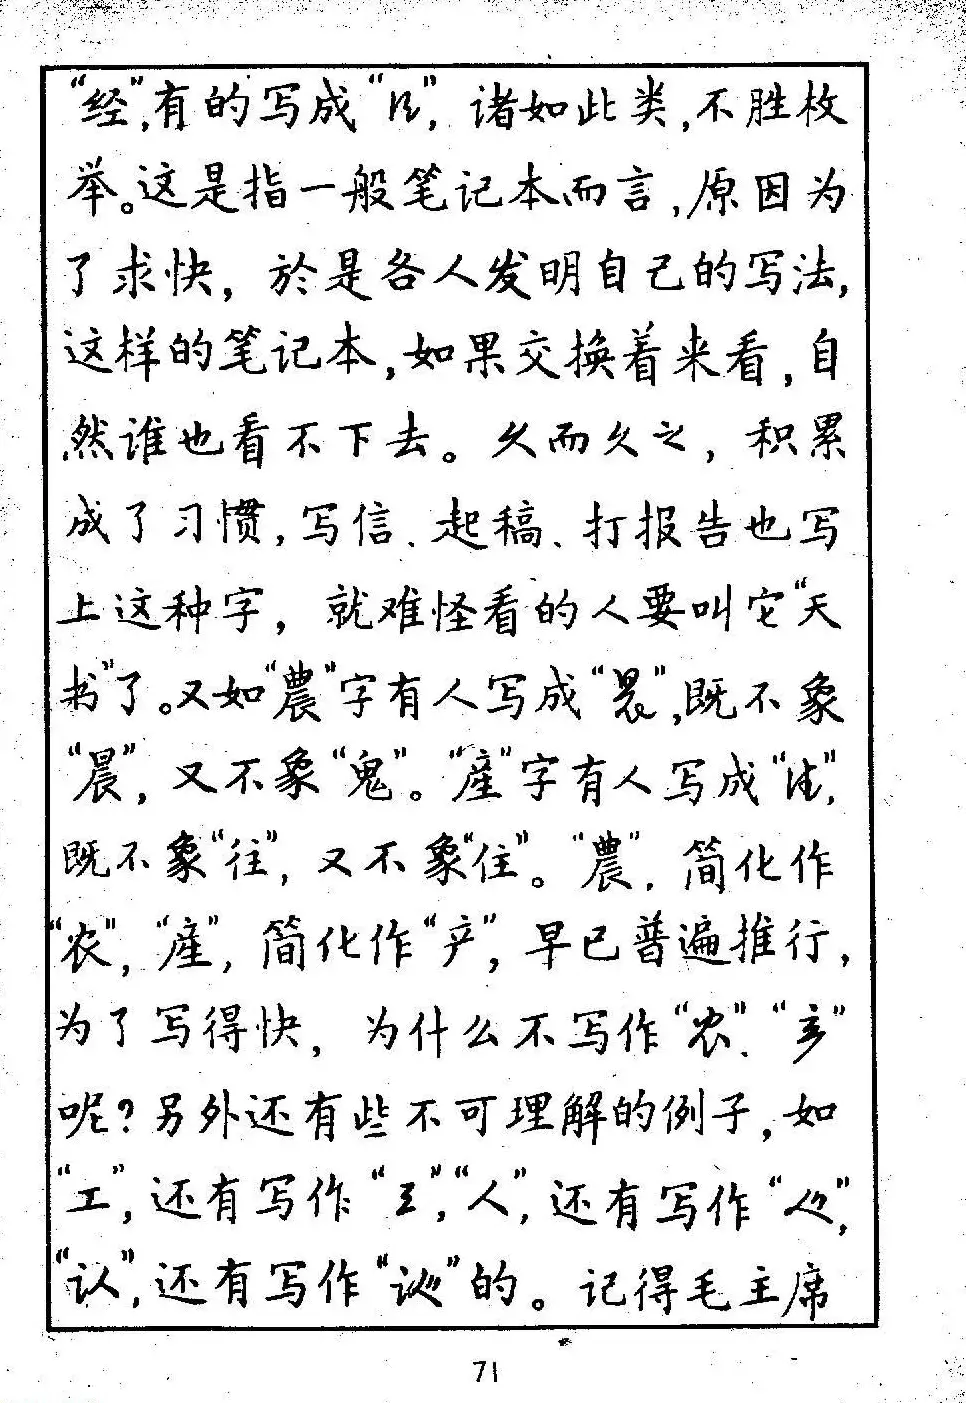 “经”,有的写成“”,诸如此类,不胜枚
举。这是指一般笔记本而言,原因为
了求快,於是各人发明自己的写法,
这样的笔记本,如果交换着来看,自
然谁也看不下去。久而久之,积累
成了习惯,写信、起稿、打报告也写
上这种字,就难怪看的人要叫它“天
书”了。又如“農”字有人写成“”,既不象
“晨”,又不象“鬼”。“産”字有人写成“”,
既不象“往”,又不象“住”。“農”,简化作
“农”,“産”,简化作“产”,早已普遍推行,
为了写得快,为什么不写作“农”、“”
呢?另外还有些不可理解的例子,如
“工”,还有写作“”,“人”,还有写作“”,
“认”,还有写作“”的。记得毛主席
71